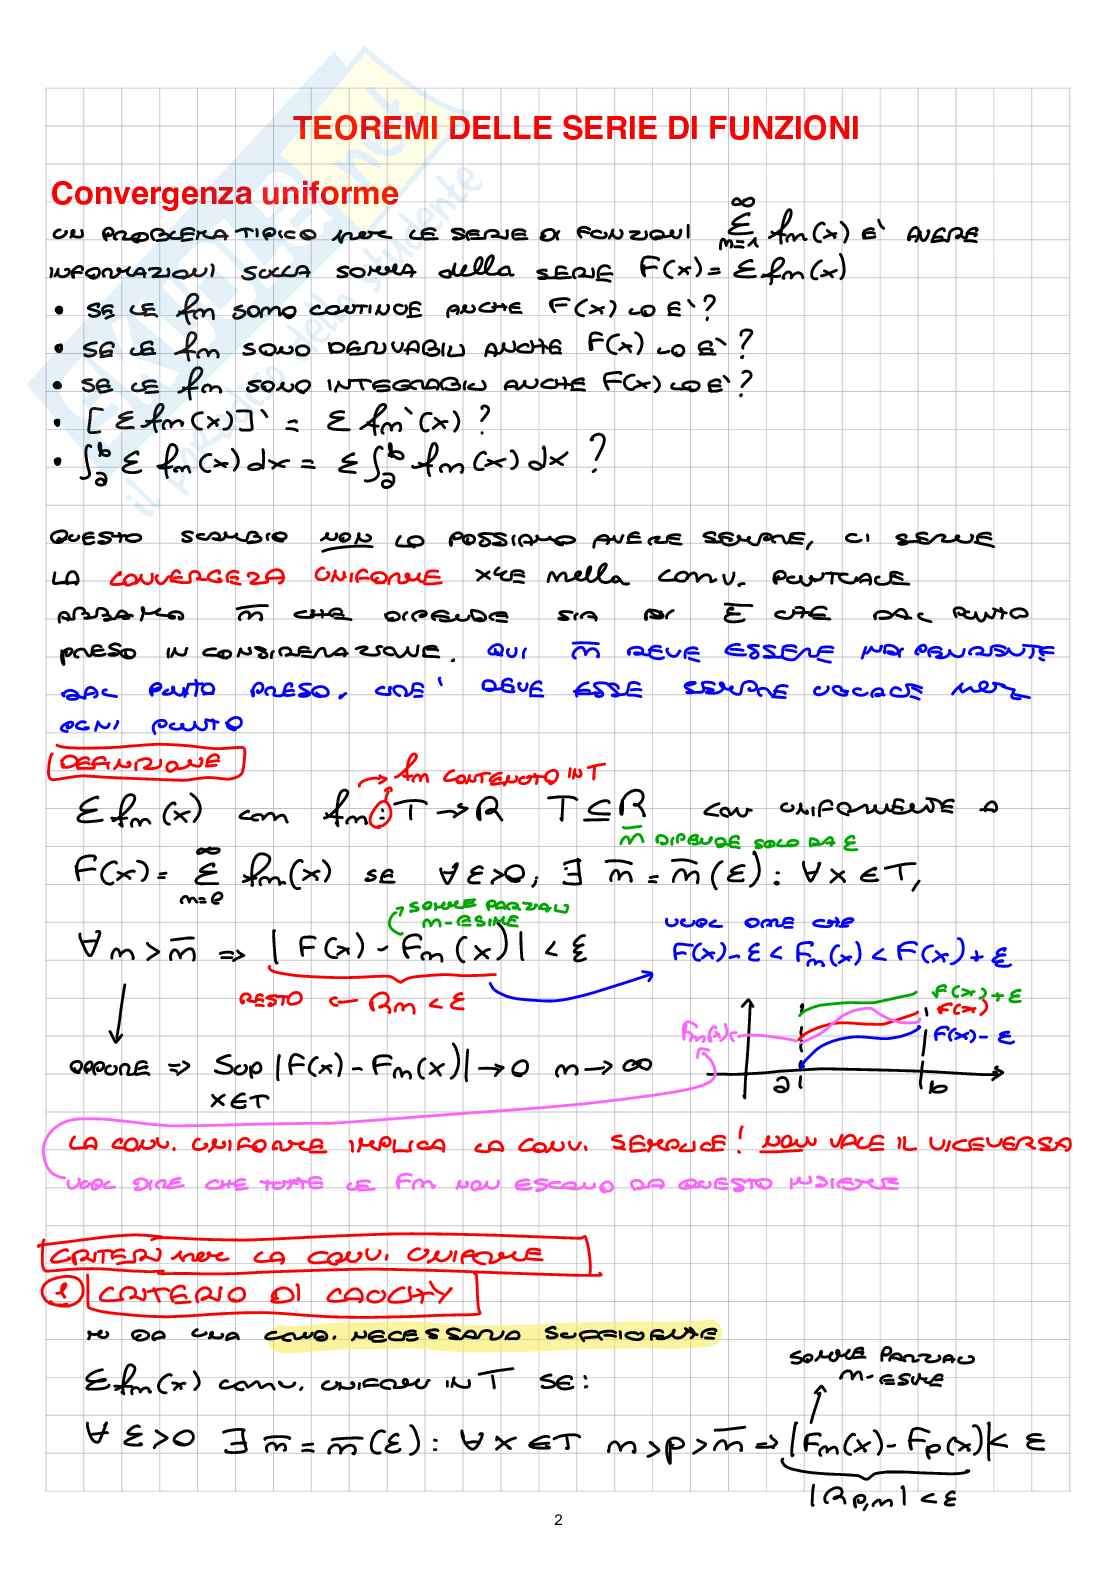 TEOREMI DELLE SERIE DI FUNZIONI
Convergenza uniforme
UN PROBLEMA TIPICO per LE SERIE DI FUNZIONI ∑_{n=1}^{∞} fn(x) E' AVERE
INFORMAZIONI SULLA SOMMA della SERIE F(x) = Σ fn(x)
• SE LE fn SONO CONTINUE ANCHE F(x) LO E'?
• SE LE fn SONO DERIVABILI ANCHE F(x) LO E'?
• SE LE fn SONO INTEGRABILI ANCHE F(x) LO E'?
• [Σ fn(x)]' = Σ fn'(x) ?
• ∫_a^b Σ fn(x) dx = Σ ∫_a^b fn(x) dx ?
QUESTO SCAMBIO NON LO POSSIAMO AVERE SEMPRE, CI SERVE
LA CONVERGEZA UNIFORME xkè nella CONV. PUNTUALE
ABBIAMO n̅ CHE DIPENDE SIA DI ε̅ CHE DAL PUNTO
PRESO IN CONSIDERAZIONE. QUI n̅ DEVE ESSERE INDIPENDENTE
DAL PUNTO PRESO, CIOE' DEVE ESSE SEMPRE UGUALE per
OGNI PUNTO
DEFINIZIONE
→ fn CONTENUTO IN T
Σ fn(x) con fn : T → R T ⊆ R CONV UNIFORMEMENTE A
n̅ DIPENDE SOLO DA ε
F(x) = ∑_{n=0}^{∞} fn(x) SE ∀ ε>0, ∃ n̅ = n̅(ε) : ∀ x ∈ T,
SOMME PARZIALI
n-ESIME
∀ n > n̅ ⇒ |F(x) - Fn(x)| < ε
VUOL DIRE CHE
F(x) - ε < Fn(x) < F(x) + ε
RESTO ← Rn < ε
F(x) + ε
F(x)
Fn(x)
F(x) - ε
a b
OPPURE ⇒ Sup_{x∈T} |F(x) - Fn(x)| → 0 n → ∞
LA CONV. UNIFORME IMPLICA LA CONV. SEMPLICE! NON VALE IL VICEVERSA
VUOL DIRE CHE TUTTE LE Fn NON ESCONO DA QUESTO INSIEME
CRITERI per LA CONV. UNIFORME
1 CRITERIO DI CAUCHY
MI DA UNA COND. NECESSARIA SUFFICIENTE
SOMME PARZIALI
n-ESIME
Σ fn(x) CONV. UNIFORM IN T SE:
∀ ε>0 ∃ n̅ = n̅(ε) : ∀ x ∈ T n > p > n̅ ⇒ |Fn(x) - Fp(x)| < ε
|Rp,n| < ε
2
SKUOLA.net
il paradiso dello studente